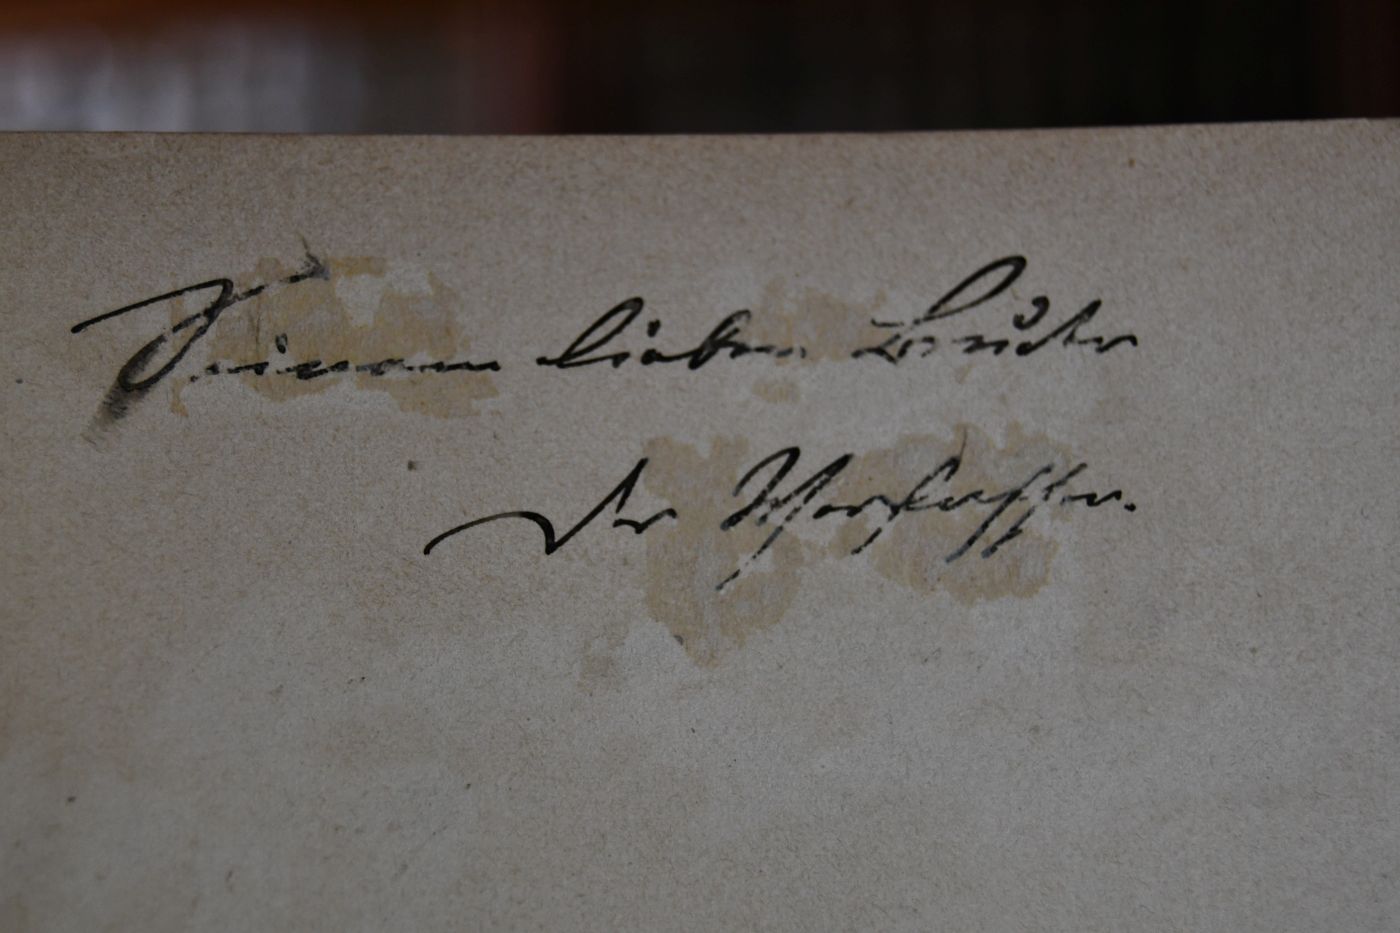 Seinem lieben Bruder
Der Verfasser.